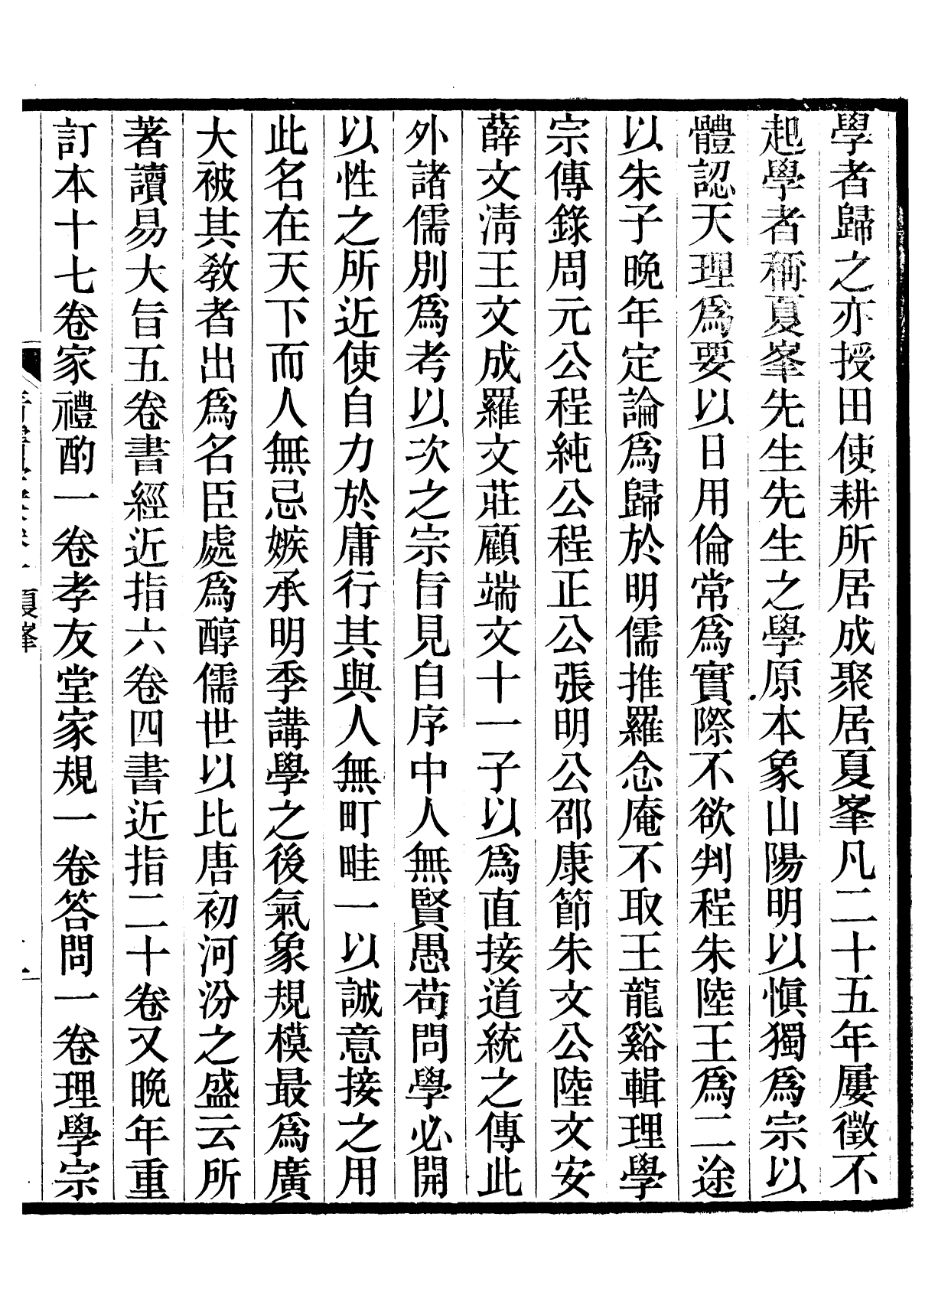 學者歸之亦授田使耕所居成聚居夏峯凡二十五年屢徵不
起學者稱夏峯先生先生之學原本象山陽明以愼獨爲宗以
體認天理爲要以日用倫常爲實際不欲判程朱陸王爲二途
以朱子晚年定論爲歸於明儒推羅念庵不取王龍谿輯理學
宗傳錄周元公程純公程正公張明公邵康節朱文公陸文安
薛文淸王文成羅文莊顧端文十一子以爲直接道統之傳此
外諸儒別爲考以次之宗旨見自序中人無賢愚苟問學必開
以性之所近使自力於庸行其與人無町畦一以誠意接之用
此名在天下而人無忌嫉承明季講學之後氣象規模最爲廣
大被其敎者出爲名臣處爲醇儒世以比唐初河汾之盛云所
著讀易大旨五卷書經近指六卷四書近指二十卷又晚年重
訂本十七卷家禮酌一卷孝友堂家規一卷答問一卷理學宗
夏峯